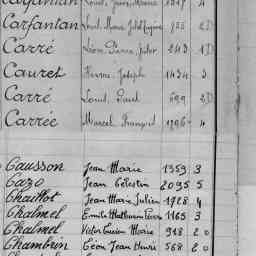 Carfantan Louis Jean Marie 1217 4
Carfantan Louis Marie Joseph Eugène 955 2D
Carré Léon Pierre 243 1D
Cauret Pierre Joseph 1434 3
Carré Louis Paul 699 2D
Carrée Marcel François 1296 4
Causson Jean Marie 1359 3
Cazo Jean Célestin 2095 5
Chaillot Jean Marie Julien 1928 4
Chalmel Emile Mathurin Pierre 1165 3
Chalmel Victor Lucien Marie 948 20
Chambrin Léon Jean Henri 568 20